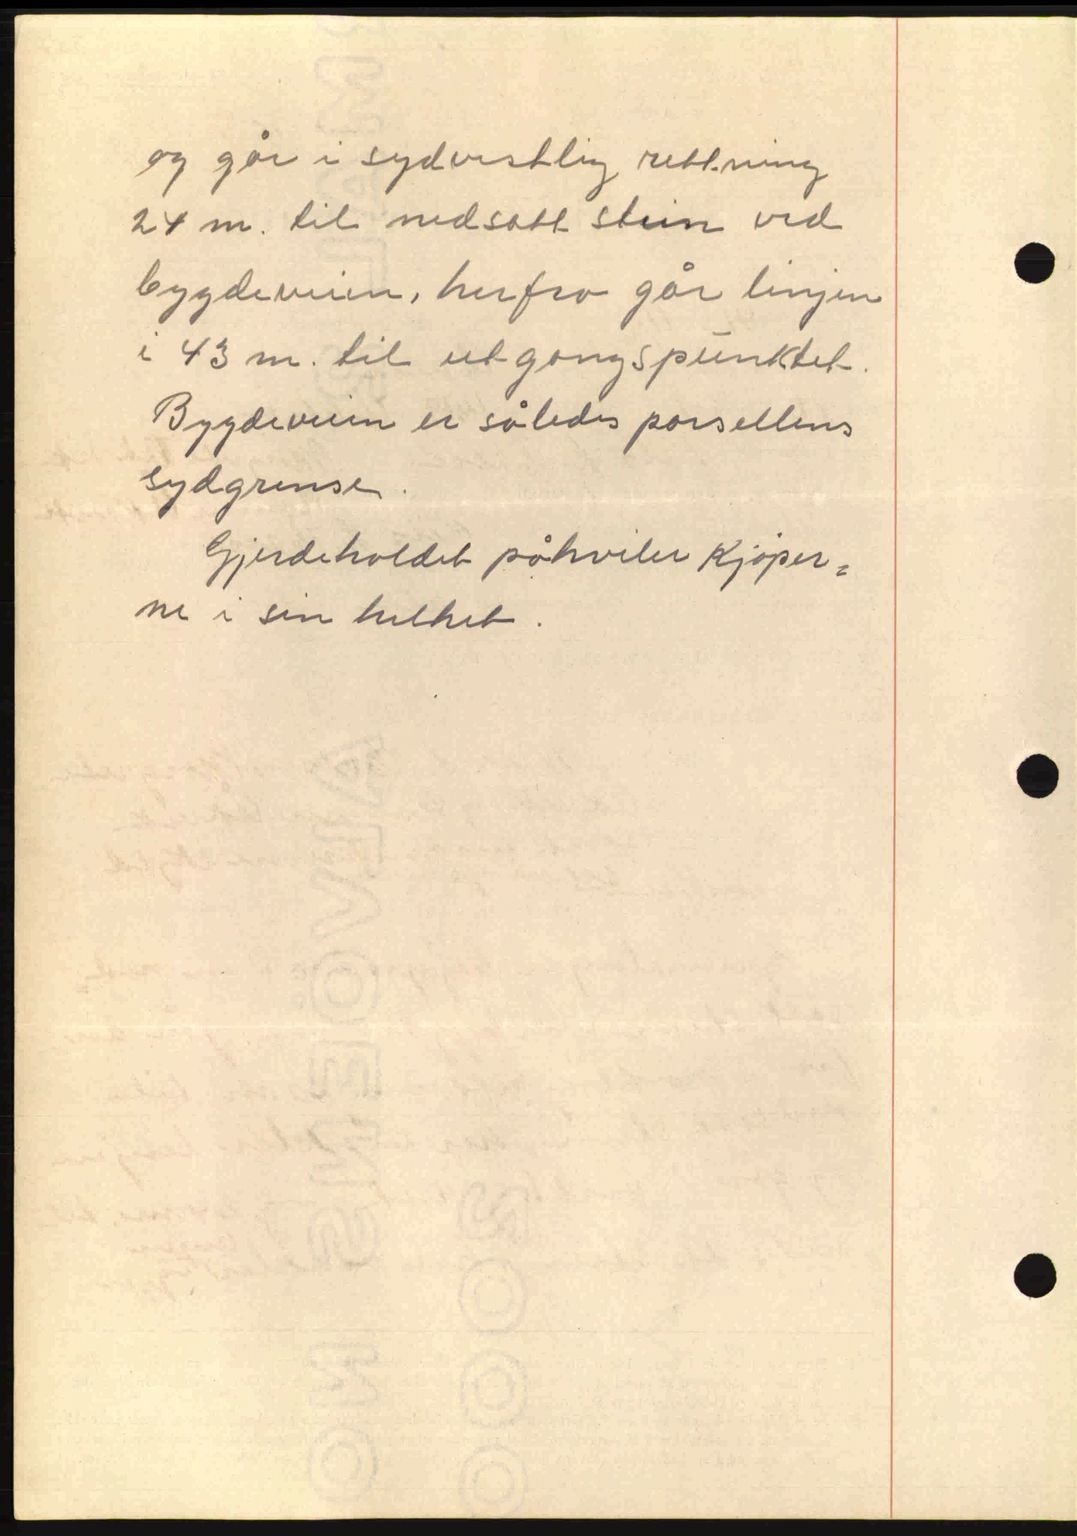 og går i sydvestlig rettning
24 m. til nedsatt stein ved
bygdeveien, herfra går linjen
i 43 m. til utgangspunktet.
Bygdeveien er således parsellens
sydgrense.
Gjerdeholdet påhviler kjøper=
ne i sin helhet.